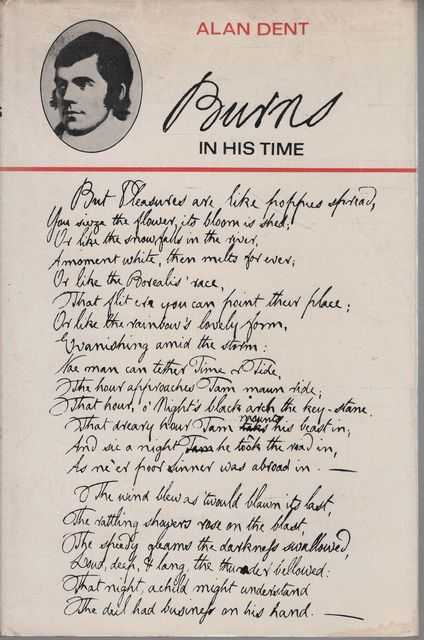 ALAN DENT
Burns
IN HIS TIME
But Pleasures are like poppies spread,
You sieze the flower, its bloom is shed;
Or like the snow falls in the river,
A moment white, then melts for ever;
Or like the Borealis' race,
That flit ere you can point their place;
Or like the rainbow's lovely form,
Evanishing amid the storm:
Nae man can tether Time & Tide,
The hour approaches Tam maun ride;
That hour, o' Night's black arch the key-stane,
That dreary hour Tam mounts his beast in;
And sic a night he took the road in,
As ne'er poor sinner was abroad in. —
The wind blew as 'twould blawn its last,
The rattling showers rose on the blast,
The speedy gleams the darkness swallowed,
Loud, deep, & lang, the thunder bellowed:
That night, a child might understand
The deil had business on his hand. —